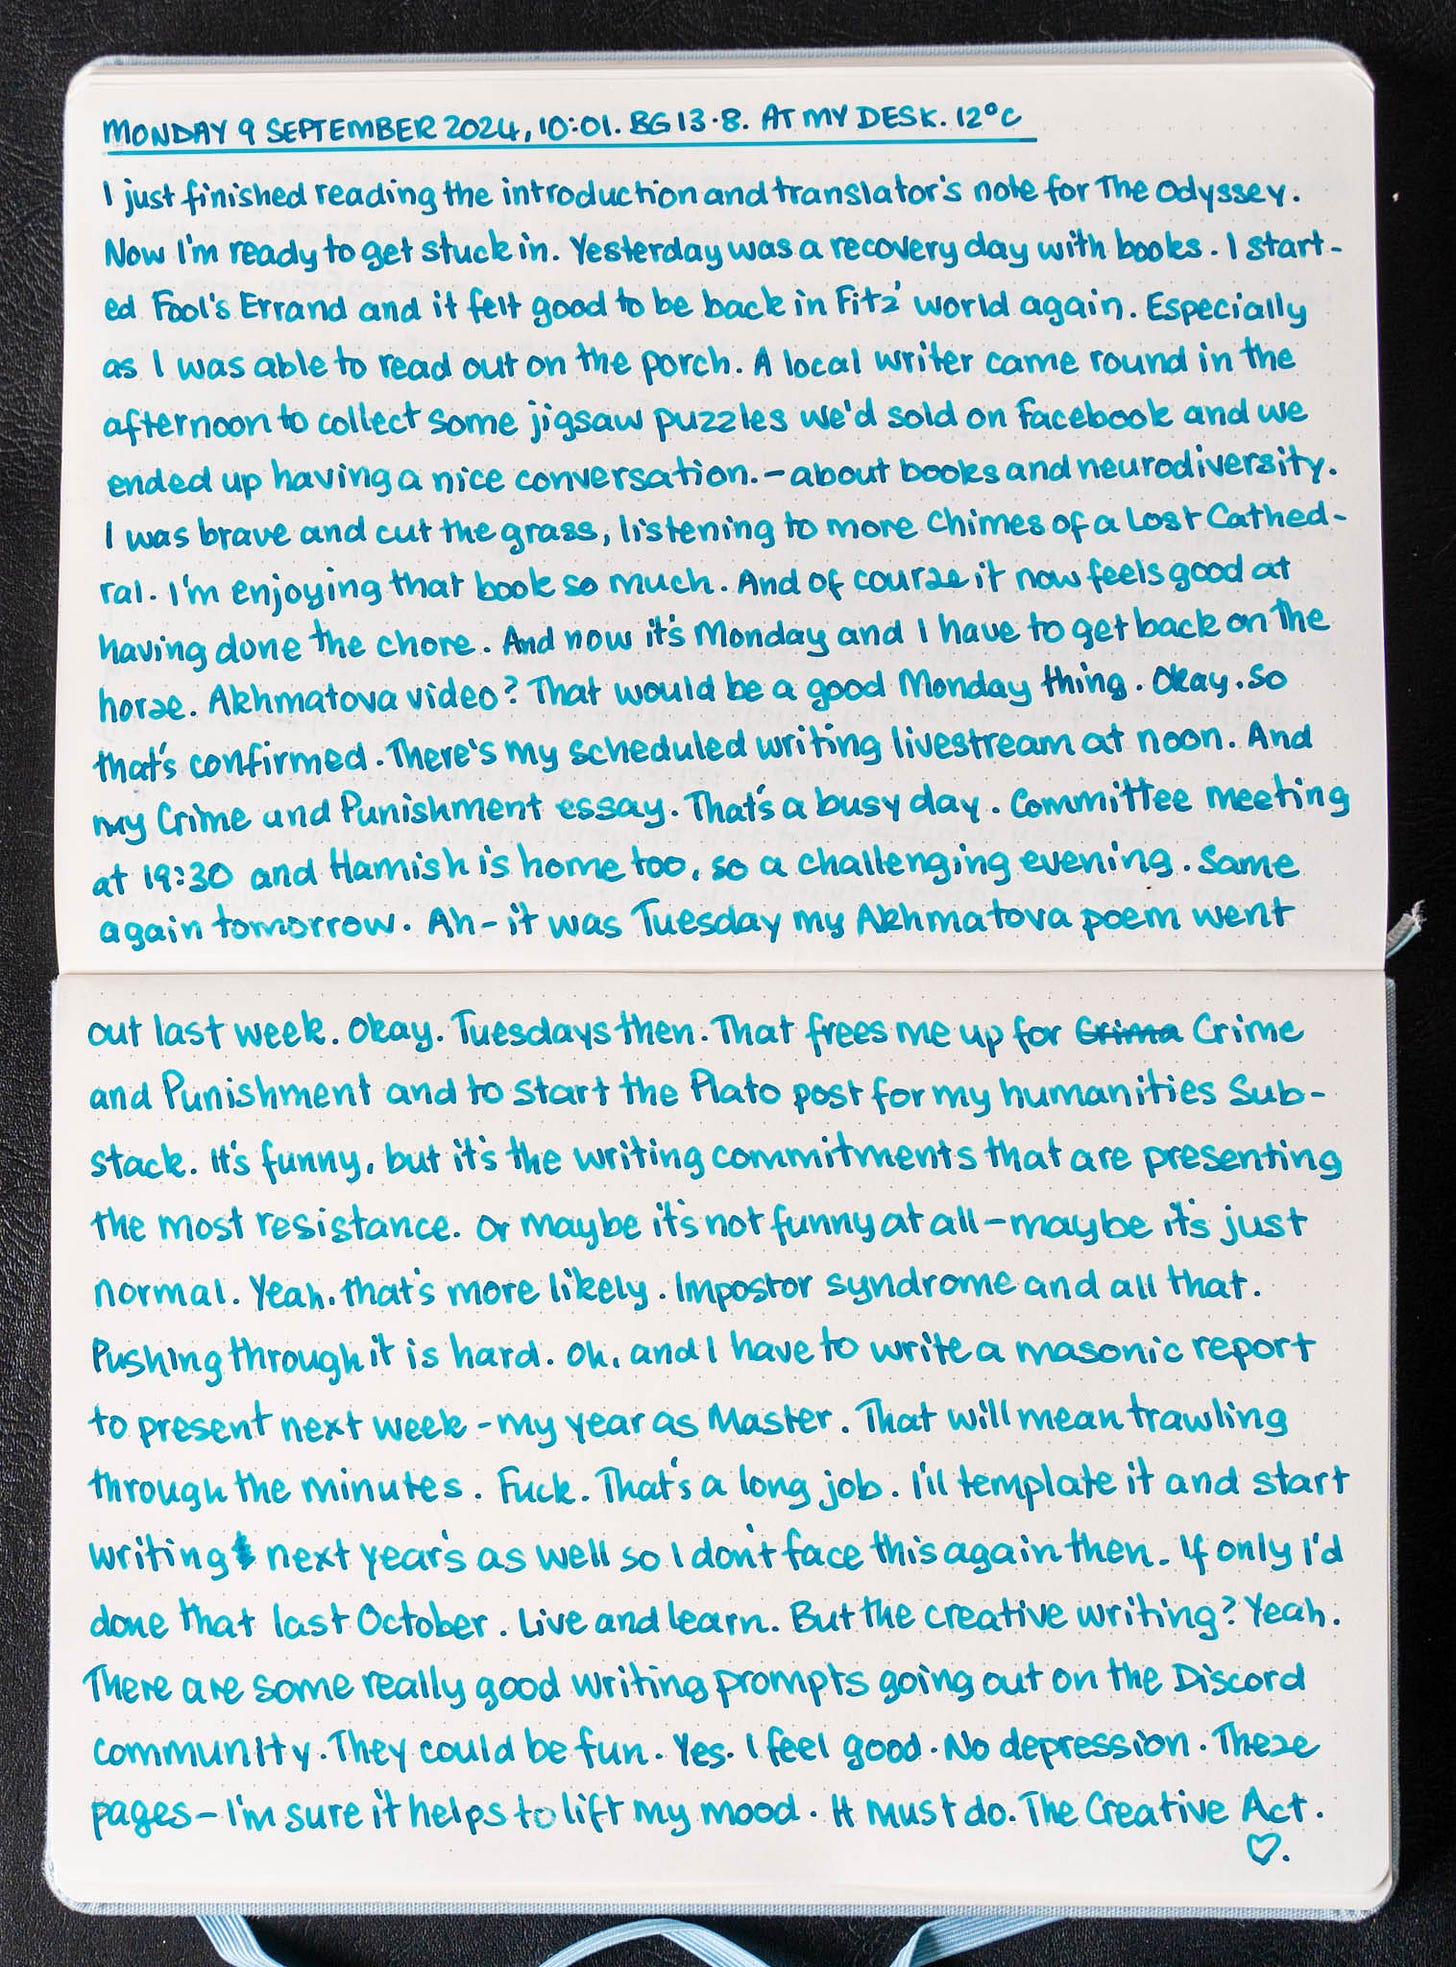 MONDAY 9 SEPTEMBER 2024, 10:01. BG 13.8. AT MY DESK. 12°C
I just finished reading the introduction and translator's note for The Odyssey.
Now I'm ready to get stuck in. Yesterday was a recovery day with books. I start-
ed Fool's Errand and it felt good to be back in Fitz' world again. Especially
as I was able to read out on the porch. A local writer came round in the
afternoon to collect some jigsaw puzzles we'd sold on Facebook and we
ended up having a nice conversation. – about books and neurodiversity.
I was brave and cut the grass, listening to more Chimes of a Lost Cathed-
ral. I'm enjoying that book so much. And of course it now feels good at
having done the chore. And now it's Monday and I have to get back on the
horse. Akhmatova video? That would be a good Monday thing. Okay. So
that's confirmed. There's my scheduled writing livestream at noon. And
my Crime and Punishment essay. That's a busy day. Committee meeting
at 19:30 and Hamish is home too, so a challenging evening. Same
again tomorrow. Ah – it was Tuesday my Akhmatova poem went
out last week. Okay. Tuesdays then. That frees me up for Crima Crime
and Punishment and to start the Plato post for my humanities Sub-
stack. It's funny, but it's the writing commitments that are presenting
the most resistance. Or maybe it's not funny at all – maybe it's just
normal. Yeah, that's more likely. Impostor syndrome and all that.
Pushing through it is hard. Oh, and I have to write a masonic report
to present next week – my year as Master. That will mean trawling
through the minutes. Fuck. That's a long job. I'll template it and start
writing next year's as well so I don't face this again then. If only I'd
done that last October. Live and learn. But the creative writing? Yeah.
There are some really good writing prompts going out on the Discord
community. They could be fun. Yes. I feel good. No depression. These
pages – I'm sure it helps to lift my mood. It must do. The Creative Act.
♡.